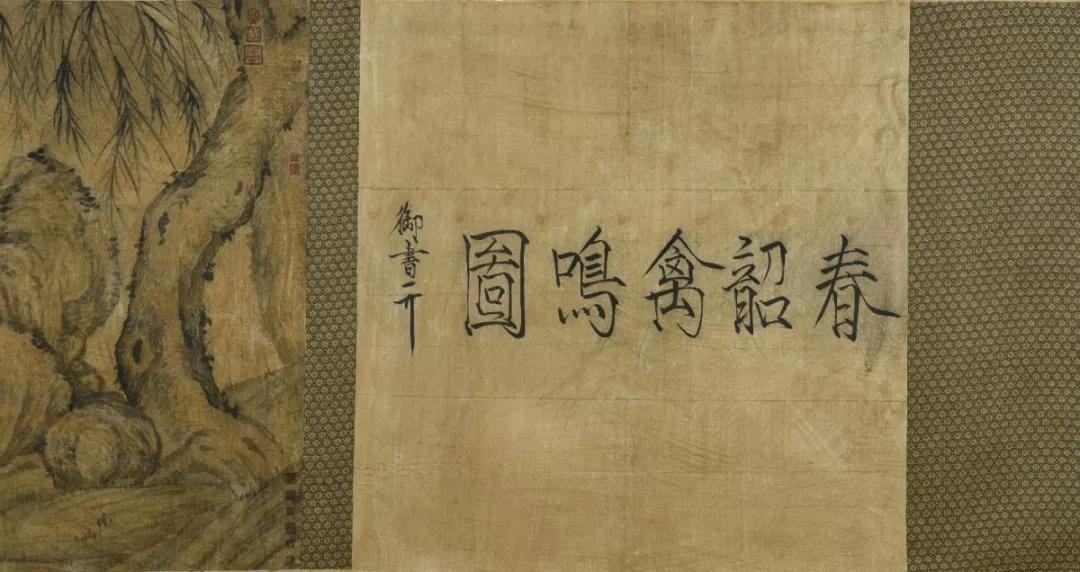 春韶禽鳴圖
御書